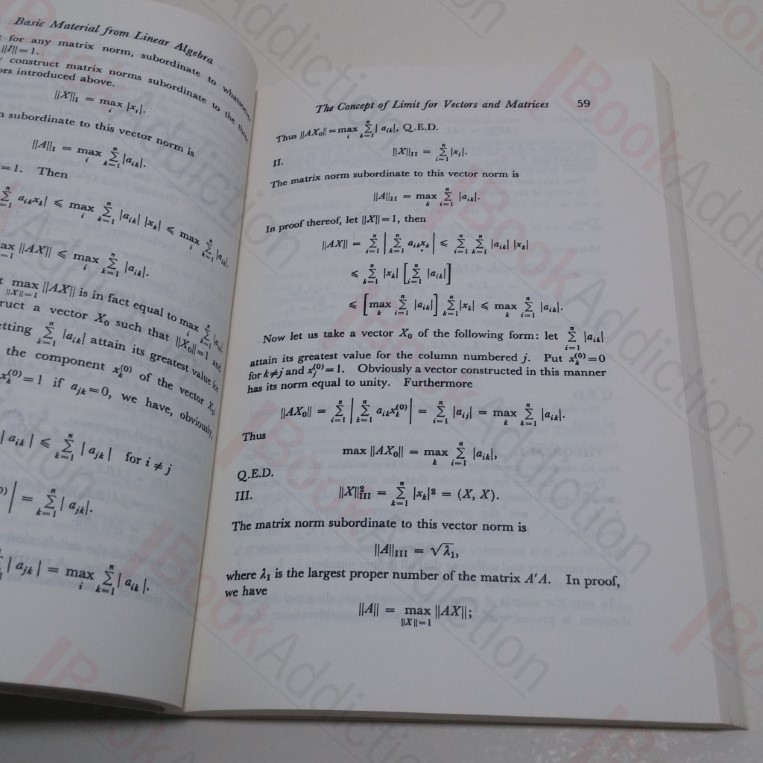 Basic Material from Linear Algebra
for any matrix norm, subordinate to
‖I‖=1.
construct matrix norms subordinate to the
introduced above.
‖X‖_I = max_i |x_i|.
subordinate to this vector norm is
‖A‖_I = max_i ∑_{k=1}^n |a_{ik}|.
=1. Then
a_{ik}x_k| ⩽ max_i ∑_{k=1}^n |a_{ik}| |x_k| ⩽ max_i ∑_{k=1}^n |a_{ik}|.
‖AX‖ ⩽ max_i ∑_{k=1}^n |a_{ik}|.
max_{‖X‖=1} ‖AX‖ is in fact equal to max_i ∑_{k=1}^n
a vector X_0 such that ‖X_0‖=1 and
∑_{k=1}^n |a_{ik}| attain its greatest value for
the component x_k^{(0)} of the vector X_0
x_k^{(0)}=1 if a_{jk}=0, we have, obviously,
|a_{ik}| ⩽ ∑_{k=1}^n |a_{jk}| for i≠j
| = ∑_{k=1}^n |a_{jk}|.
|a_{jk}| = max_i ∑_{k=1}^n |a_{ik}|.
The Concept of Limit for Vectors and Matrices 59
Thus ‖AX_0‖=max_i ∑_{k=1}^n |a_{ik}|, Q.E.D.
II. ‖X‖_{II} = ∑_{i=1}^n |x_i|.
The matrix norm subordinate to this vector norm is
‖A‖_{II} = max_k ∑_{i=1}^n |a_{ik}|.
In proof thereof, let ‖X‖=1, then
‖AX‖ = ∑_{i=1}^n |∑_{k=1}^n a_{ik}x_k| ⩽ ∑_{i=1}^n ∑_{k=1}^n |a_{ik}| |x_k|
⩽ ∑_{k=1}^n |x_k| [∑_{i=1}^n |a_{ik}|]
⩽ [max_k ∑_{i=1}^n |a_{ik}|] ∑_{k=1}^n |x_k| ⩽ max_k ∑_{i=1}^n |a_{ik}|.
Now let us take a vector X_0 of the following form: let ∑_{i=1}^n |a_{ik}|
attain its greatest value for the column numbered j. Put x_k^{(0)}=0
for k≠j and x_j^{(0)}=1. Obviously a vector constructed in this manner
has its norm equal to unity. Furthermore
‖AX_0‖ = ∑_{i=1}^n |∑_{k=1}^n a_{ik}x_k^{(0)}| = ∑_{i=1}^n |a_{ij}| = max_k ∑_{k=1}^n |a_{ik}|.
Thus
max ‖AX_0‖ = max_k ∑_{i=1}^n |a_{ik}|,
Q.E.D.
III. ‖X‖_{III}^2 = ∑_{k=1}^n |x_k|^2 = (X, X).
The matrix norm subordinate to this vector norm is
‖A‖_{III} = √λ_1,
where λ_1 is the largest proper number of the matrix A′A. In proof,
we have
‖A‖ = max_{‖X‖=1} ‖AX‖;
BookAddiction